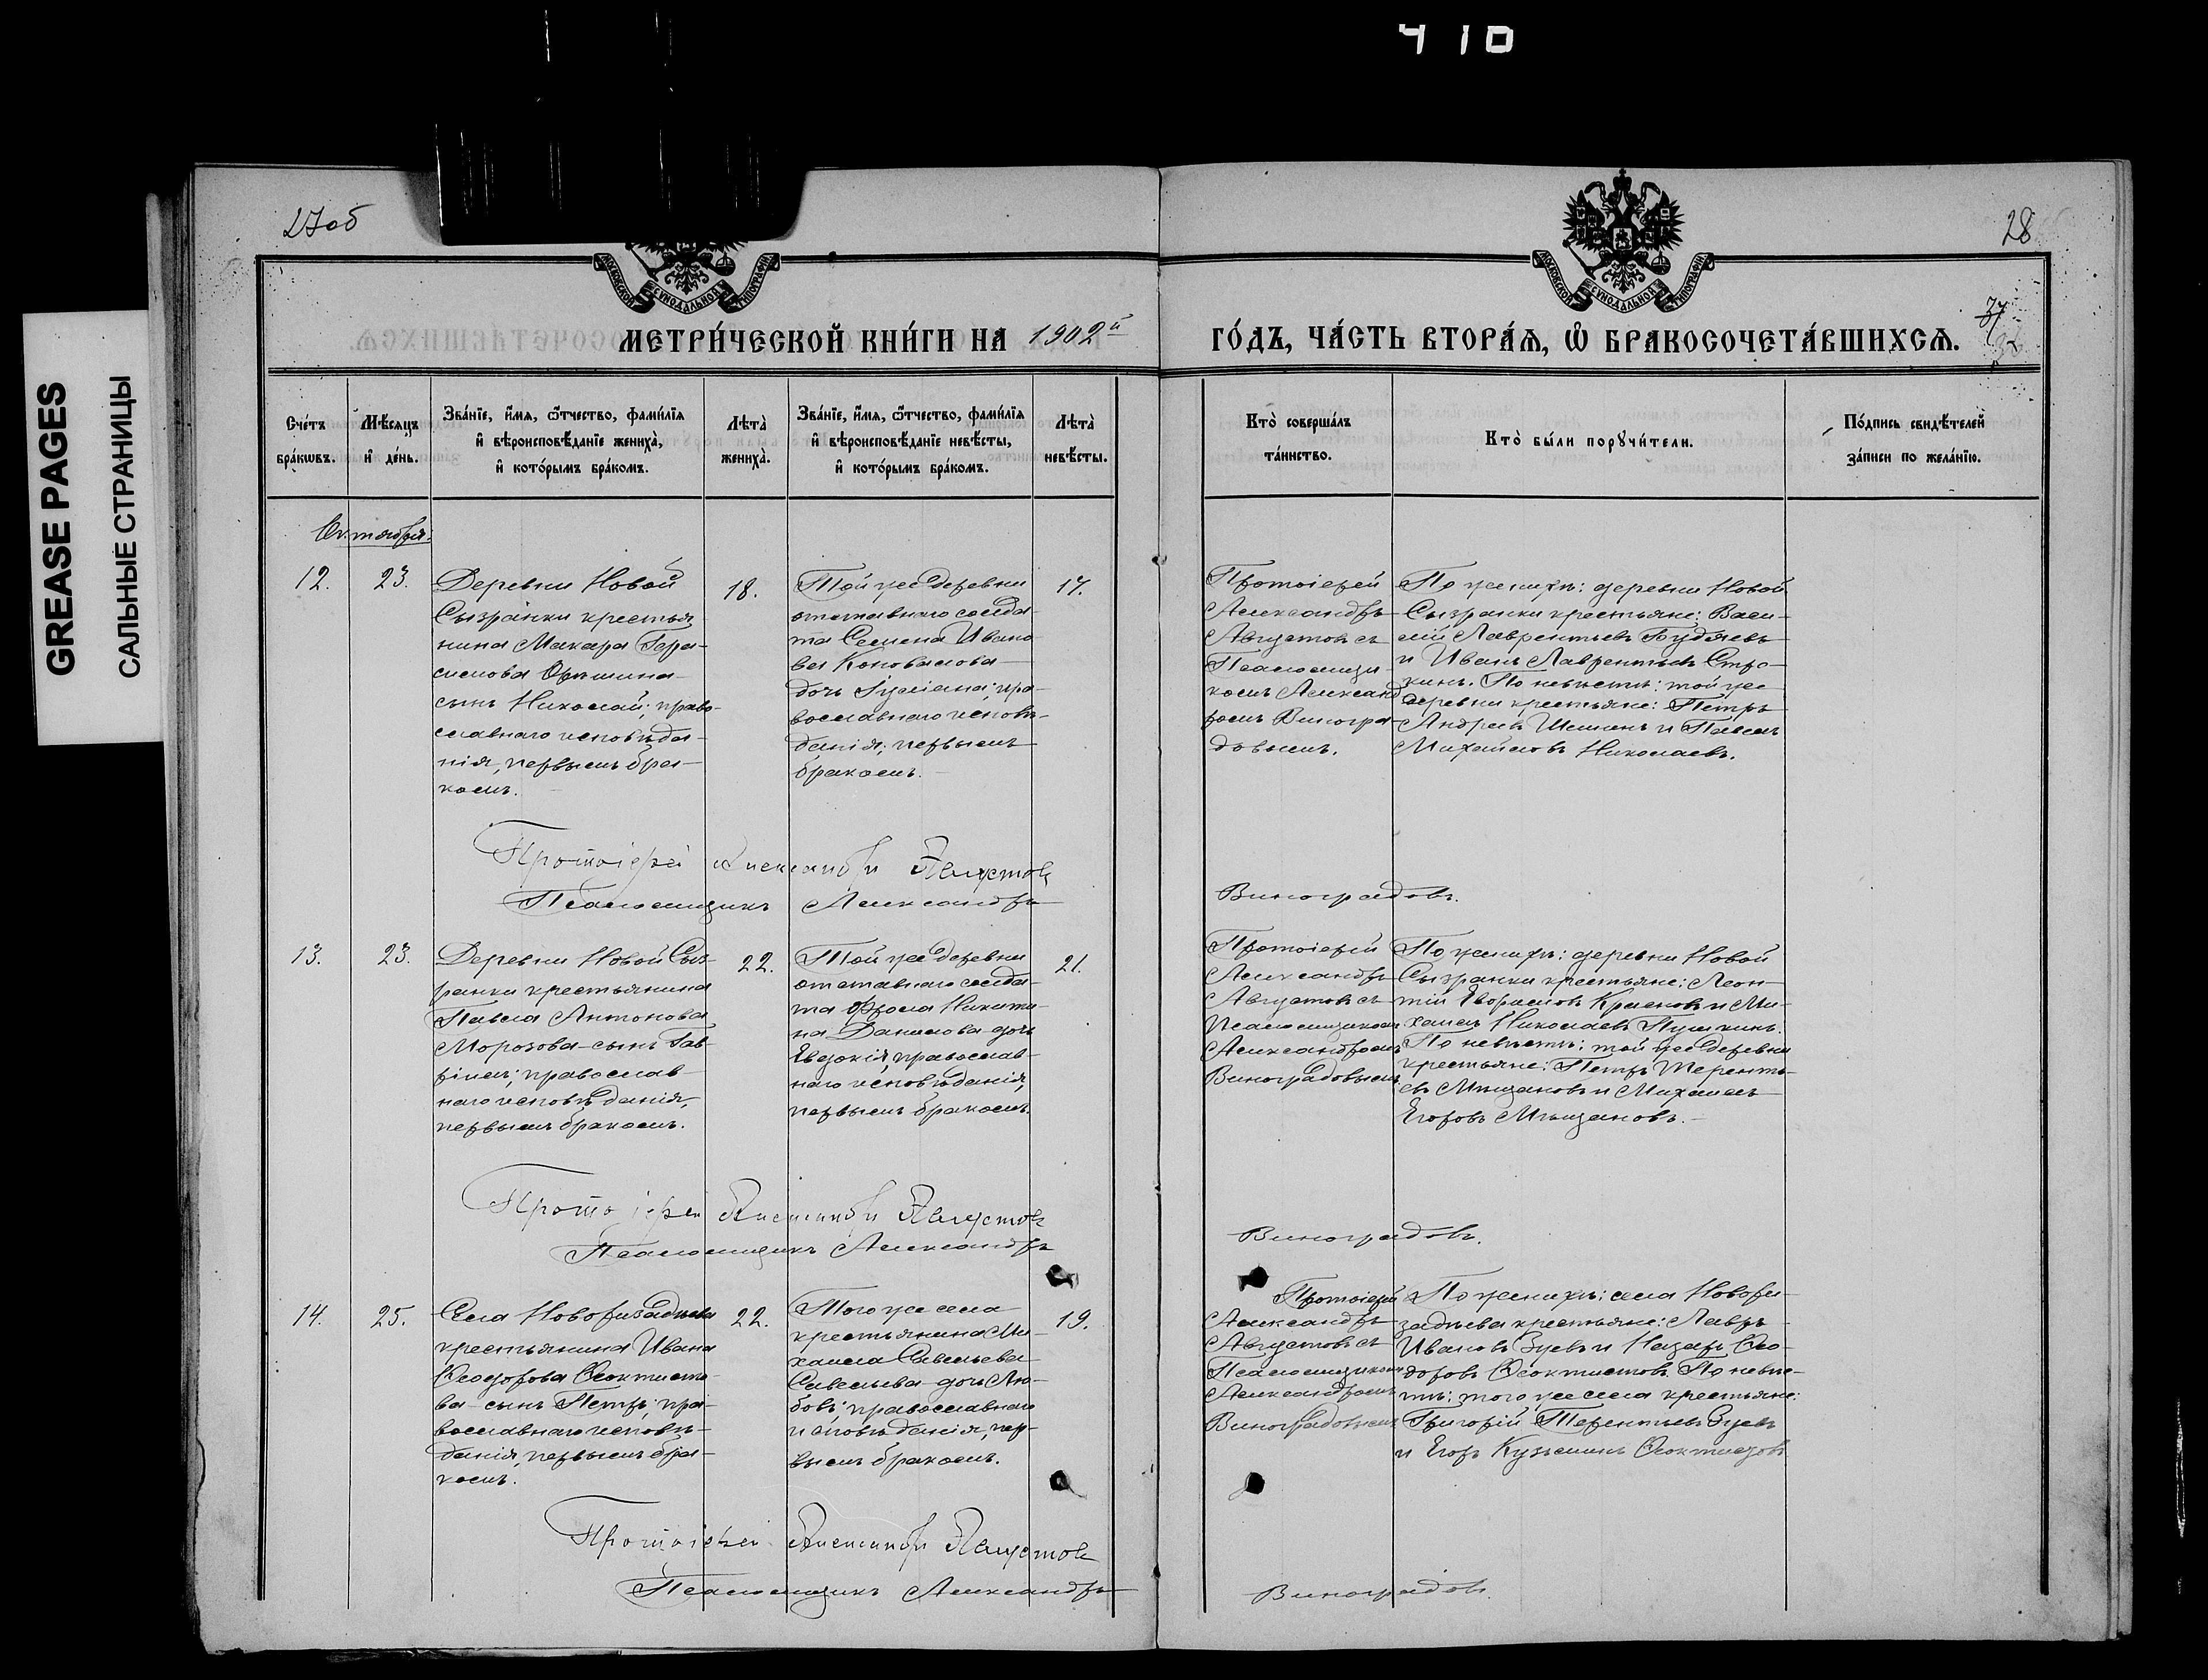 410
GREASE PAGES
САЛЬНЫЕ СТРАНИЦЫ
27об
28
37
МОСКОВСКОЙ СУНОДАЛЬНОЙ ТИПОГРАФІИ
МОСКОВСКОЙ СУНОДАЛЬНОЙ ТИПОГРАФІИ
МЕТРИ́ЧЕСКОЙ КНИ́ГИ НА 1902й
ГО́ДЪ, ЧА́СТЬ ВТОРА́Я, Ѽ БРАКОСОЧЕТА́ВШИХСѦ.
Сче́тъ
бра́кѡвъ.
Мѣ́сяцъ
и҆ де́нь.
Зва́нїе, и҆́мѧ, ѻ҆́тчество, фами́лїѧ
и҆ вѣроисповѣ́данїе жениха̀,
и҆ кото́рымъ бра́комъ.
Лѣта̀
жениха̀.
Зва́нїе, и҆́мѧ, ѻ҆́тчество, фами́лїѧ
и҆ вѣроисповѣ́данїе невѣ́сты,
и҆ кото́рымъ бра́комъ.
Лѣта̀
невѣ́сты.
Кто̀ соверша́лъ
та́инство.
Кто̀ бы́ли порꙋчи́тели.
По́дпись свидѣ́телей
за́писи по жела́нїю.
Октября:
12.
23.
Деревни Новой
Сызранки крестья
нина Макара Гера-
симова
сынъ Николай; право-
славнаго исповѣда-
нія, первымъ бра-
комъ.
18.
Той же деревни
отставнаго солда-
та Семена Ивано
ва Коновалова
дочь Іуліана; пра-
вославнаго исповѣ-
данія; первымъ
бракомъ.
17.
Протоіерей
Александръ
Августовъ съ
Псаломщи
комъ Александ
ромъ Виногра-
довымъ.
По женихѣ: деревни Новой
Сызранки крестьяне: Васи-
лій Лаврентьевъ
и Иванъ Лаврентьевъ Стро-
кинъ. По невѣстѣ: той же
деревни крестьяне: Петръ
Андреевъ и Павелъ
Михайловъ Николаевъ.
Протоіерей Александръ Августовъ
Псаломщикъ Александръ
Виноградовъ.
13.
23.
Деревни Новой Сыз-
ранки крестьянина
Павла Антонова
Морозова сынъ Гав-
ріилъ; православ-
наго исповѣданія,
первымъ бракомъ.
22.
Той же деревни
отставнаго солда-
та Фрола Никити-
на Данилова дочь
Евдокія, православ-
наго исповѣданія,
первымъ бракомъ.
21.
Протоіерей
Александръ
Августовъ съ
Псаломщикомъ
Александромъ
Виноградовымъ
По женихѣ: деревни Новой
Сызранки крестьяне: Леон-
тій и Ми-
хаилъ Николаевъ Пушкинъ.
По невѣстѣ: той же деревни
крестьяне: Петръ Теренть-
евъ Мѣщановъ и Михаилъ
Егоровъ Мѣщановъ.
Протоіерей Александръ Августовъ
Псаломщикъ Александръ
Виноградовъ.
14.
25.
Села Новоризадѣева
крестьянина Ивана
Ѳеодорова Ѳеоктисто-
ва сынъ Петръ; пра-
вославнаго исповѣ-
данія, первымъ бра-
комъ.
22.
Того же села
крестьянина Ми-
хаила Савельева
Савельева дочь Лю-
бовь; православнаго
исповѣданія, пер-
вымъ бракомъ.
19.
Протоіерей
Александръ
Августовъ съ
Псаломщикомъ
Александромъ
Виноградовымъ
По женихѣ: села Новори-
задѣева крестьяне: Лавръ
Ивановъ Зуевъ и Назаръ Ѳео-
доровъ Ѳеоктистовъ. По невѣс-
тѣ: того же села крестьяне:
Григорій Терентьевъ Зуевъ
и Егоръ Кузьминъ Ѳеоктистовъ
Протоіерей Александръ Августовъ
Псаломщикъ Александръ
Виноградовъ.